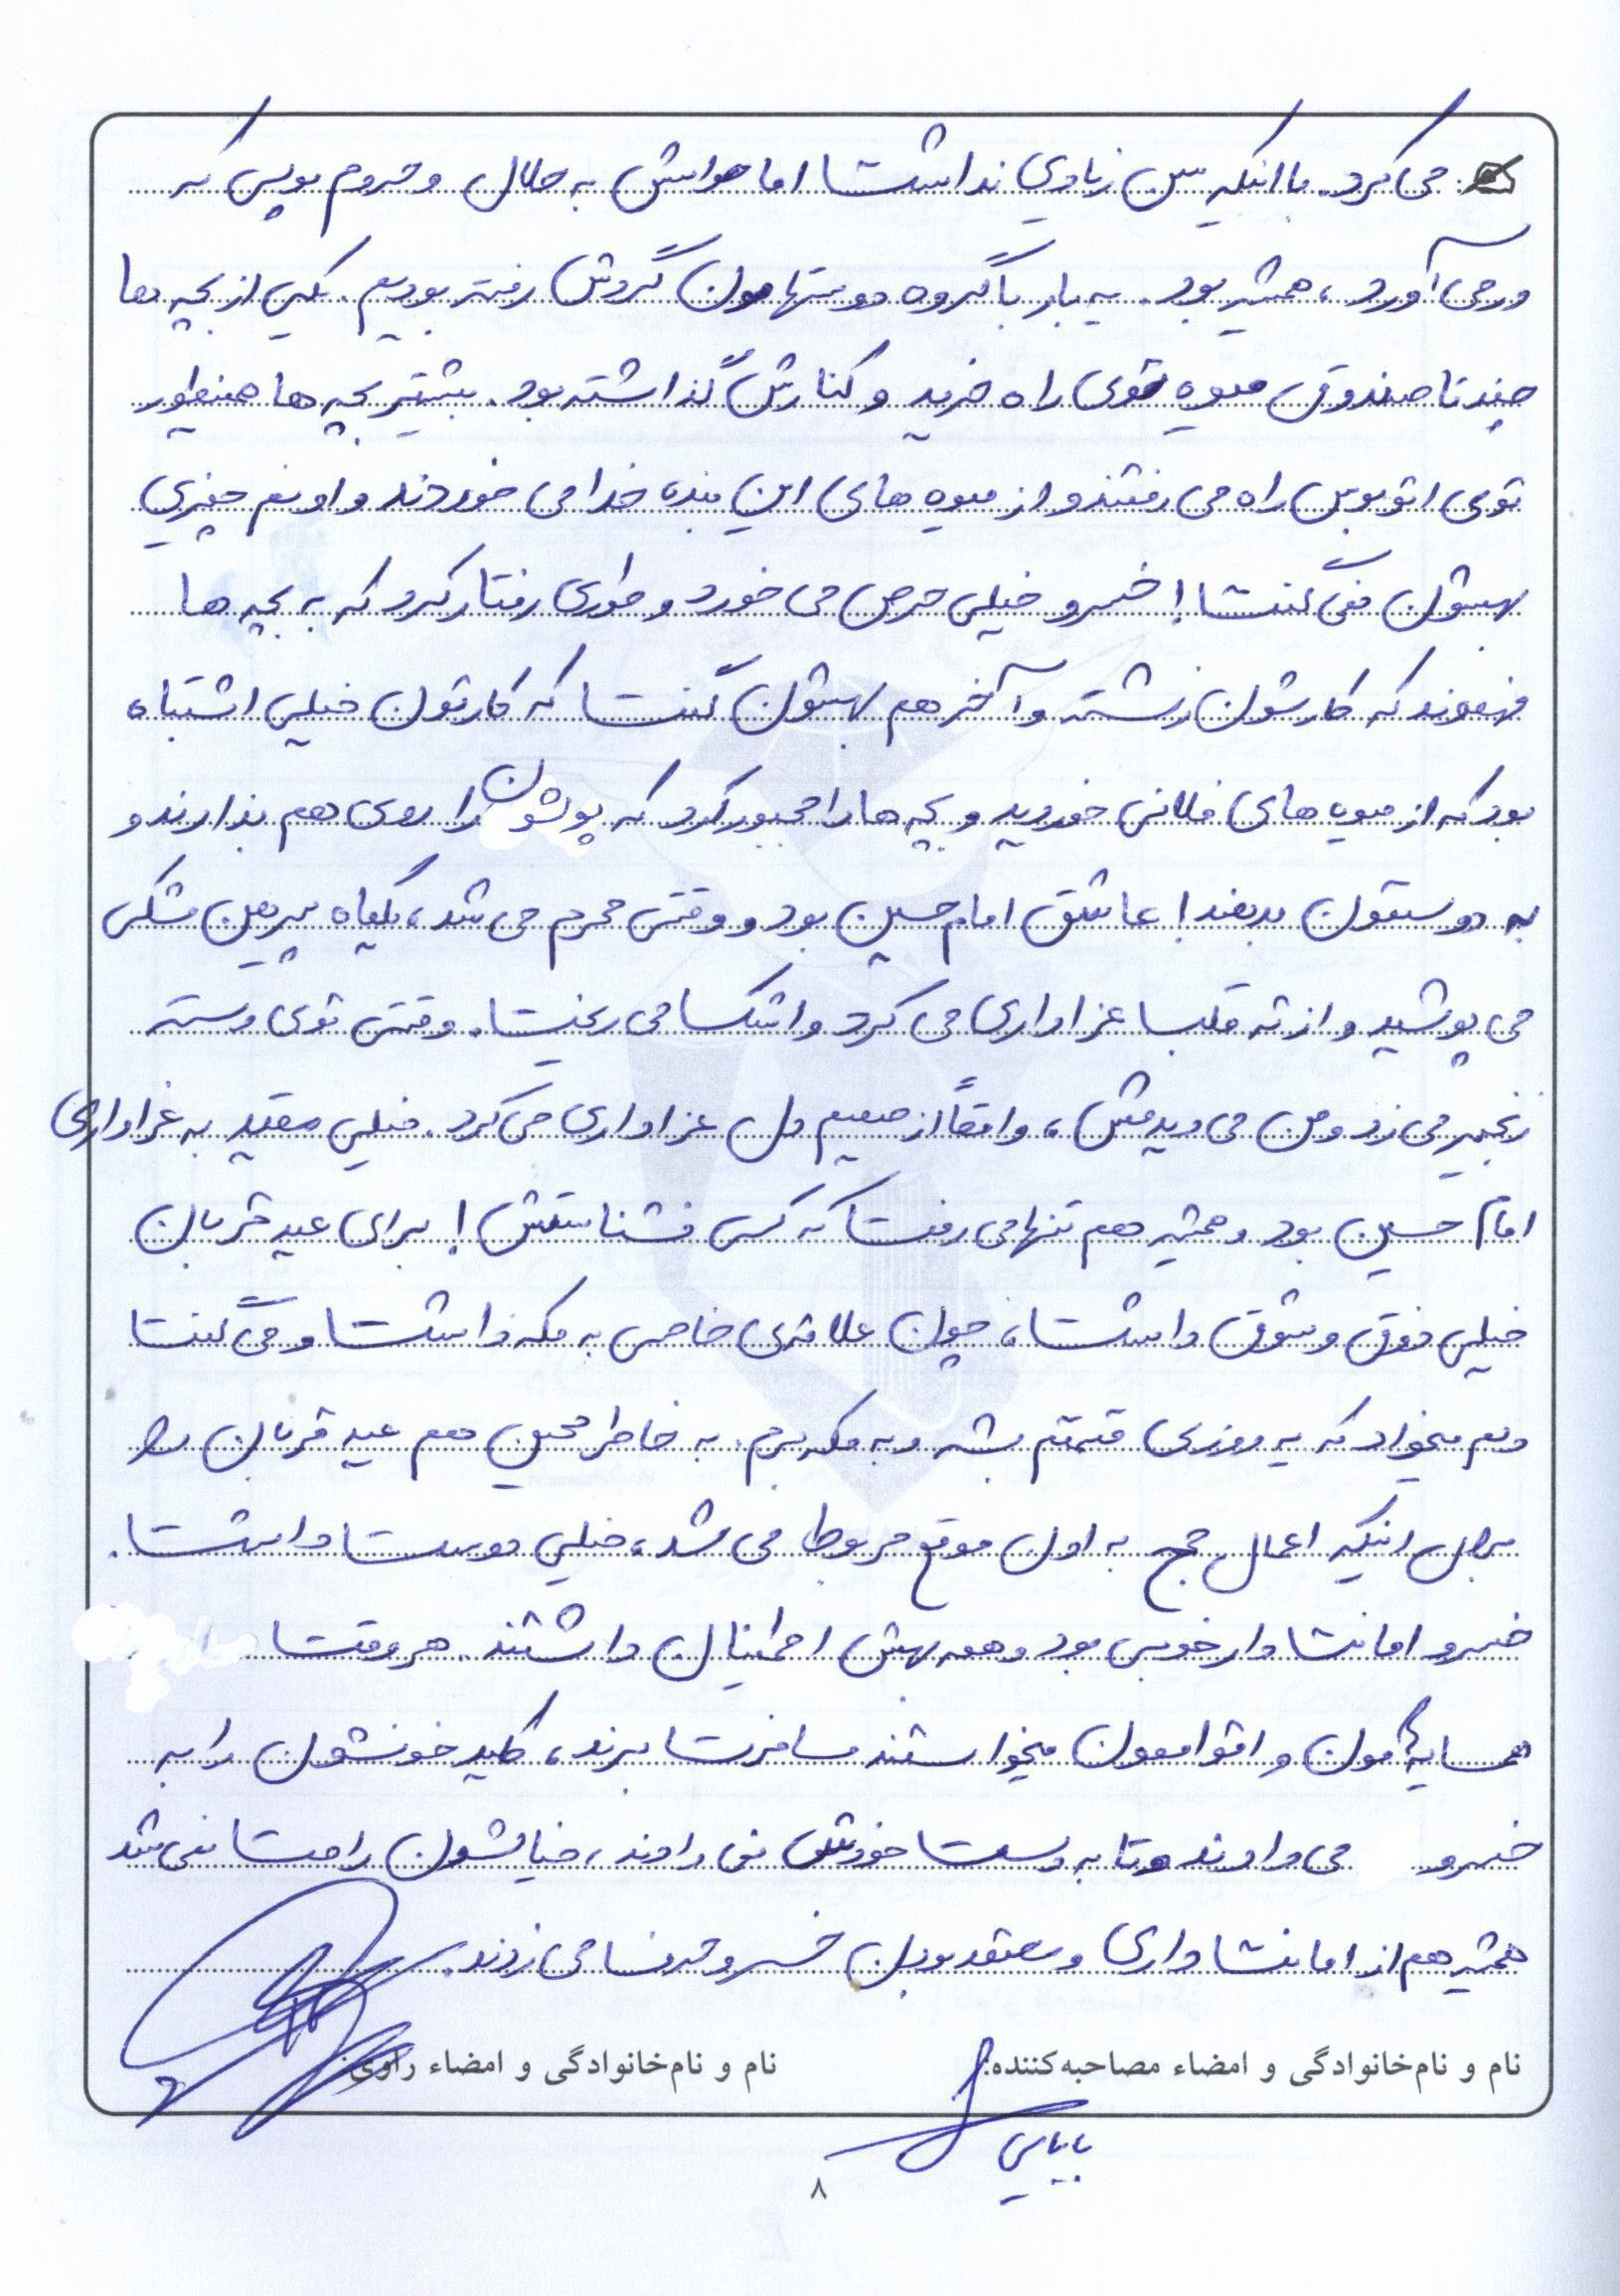 می کرد. با اینکه سن زیادی نداشت اما حواسش به حلال و حروم پولی که
در می آورد، همیشه بود. یه بار با گروه دوستهامون گردش رفته بودیم. یکی از بچه ها
چند تا صندوق میوه توی راه خرید و کنارش گذاشته بود. بیشتر بچه ها همینطور
توی اتوبوس راه می رفتند و از میوه های این بنده خدا می خوردند و اونم چیزی
بهشون نمی گفت! خسرو خیلی حرص می خورد و طوری رفتار کرد که به بچه ها
فهموند که کارشون زشته و آخر هم بهشون گفت که کارتون خیلی اشتباه
بود که از میوه های فلانی خوردید و بچه ها را مجبور کرد که پولشون را روی هم بذارند و
به دوستمون بدهند! عاشق امام حسین بود و وقتی محرم می شد، یکماه پیرهن مشکی
می پوشید و از ته قلب عزاداری می کرد و اشک می ریخت. وقتی توی دسته
زنجیر می زد و من می دیدمش، واقعاً از صمیم دل عزاداری می کرد. خیلی مقید به عزاداری
امام حسین بود و همیشه هم تنها می رفت که کسی نشناستش! برای عید قربان
خیلی ذوق و شوق داشت، چون علاقه‌ی خاصی به مکه داشت و می گفت
دلم میخواد که یه روزی قسمتم بشه و به مکه برم. به خاطر همین هم عید قربان را
بدلیل اینکه اعمال حج به اون موقع مربوط می شد، خیلی دوست داشت.
خسرو امانت دار خوبی بود و همه بهش اطمینان داشتند. هر وقت
همسایه مون و اقوامون میخواستند مسافرت برند، کلید خونشون را به
خسرو می دادند و تا به دست خودش نمی دادند، خیالشون راحت نمی شد
همیشه هم از امانت داری و معتقد بودن خسرو حرف می زدند.
نام و نام‌خانوادگی و امضاء مصاحبه‌کننده: نام و نام‌خانوادگی و امضاء راوی:
بابایی
۸